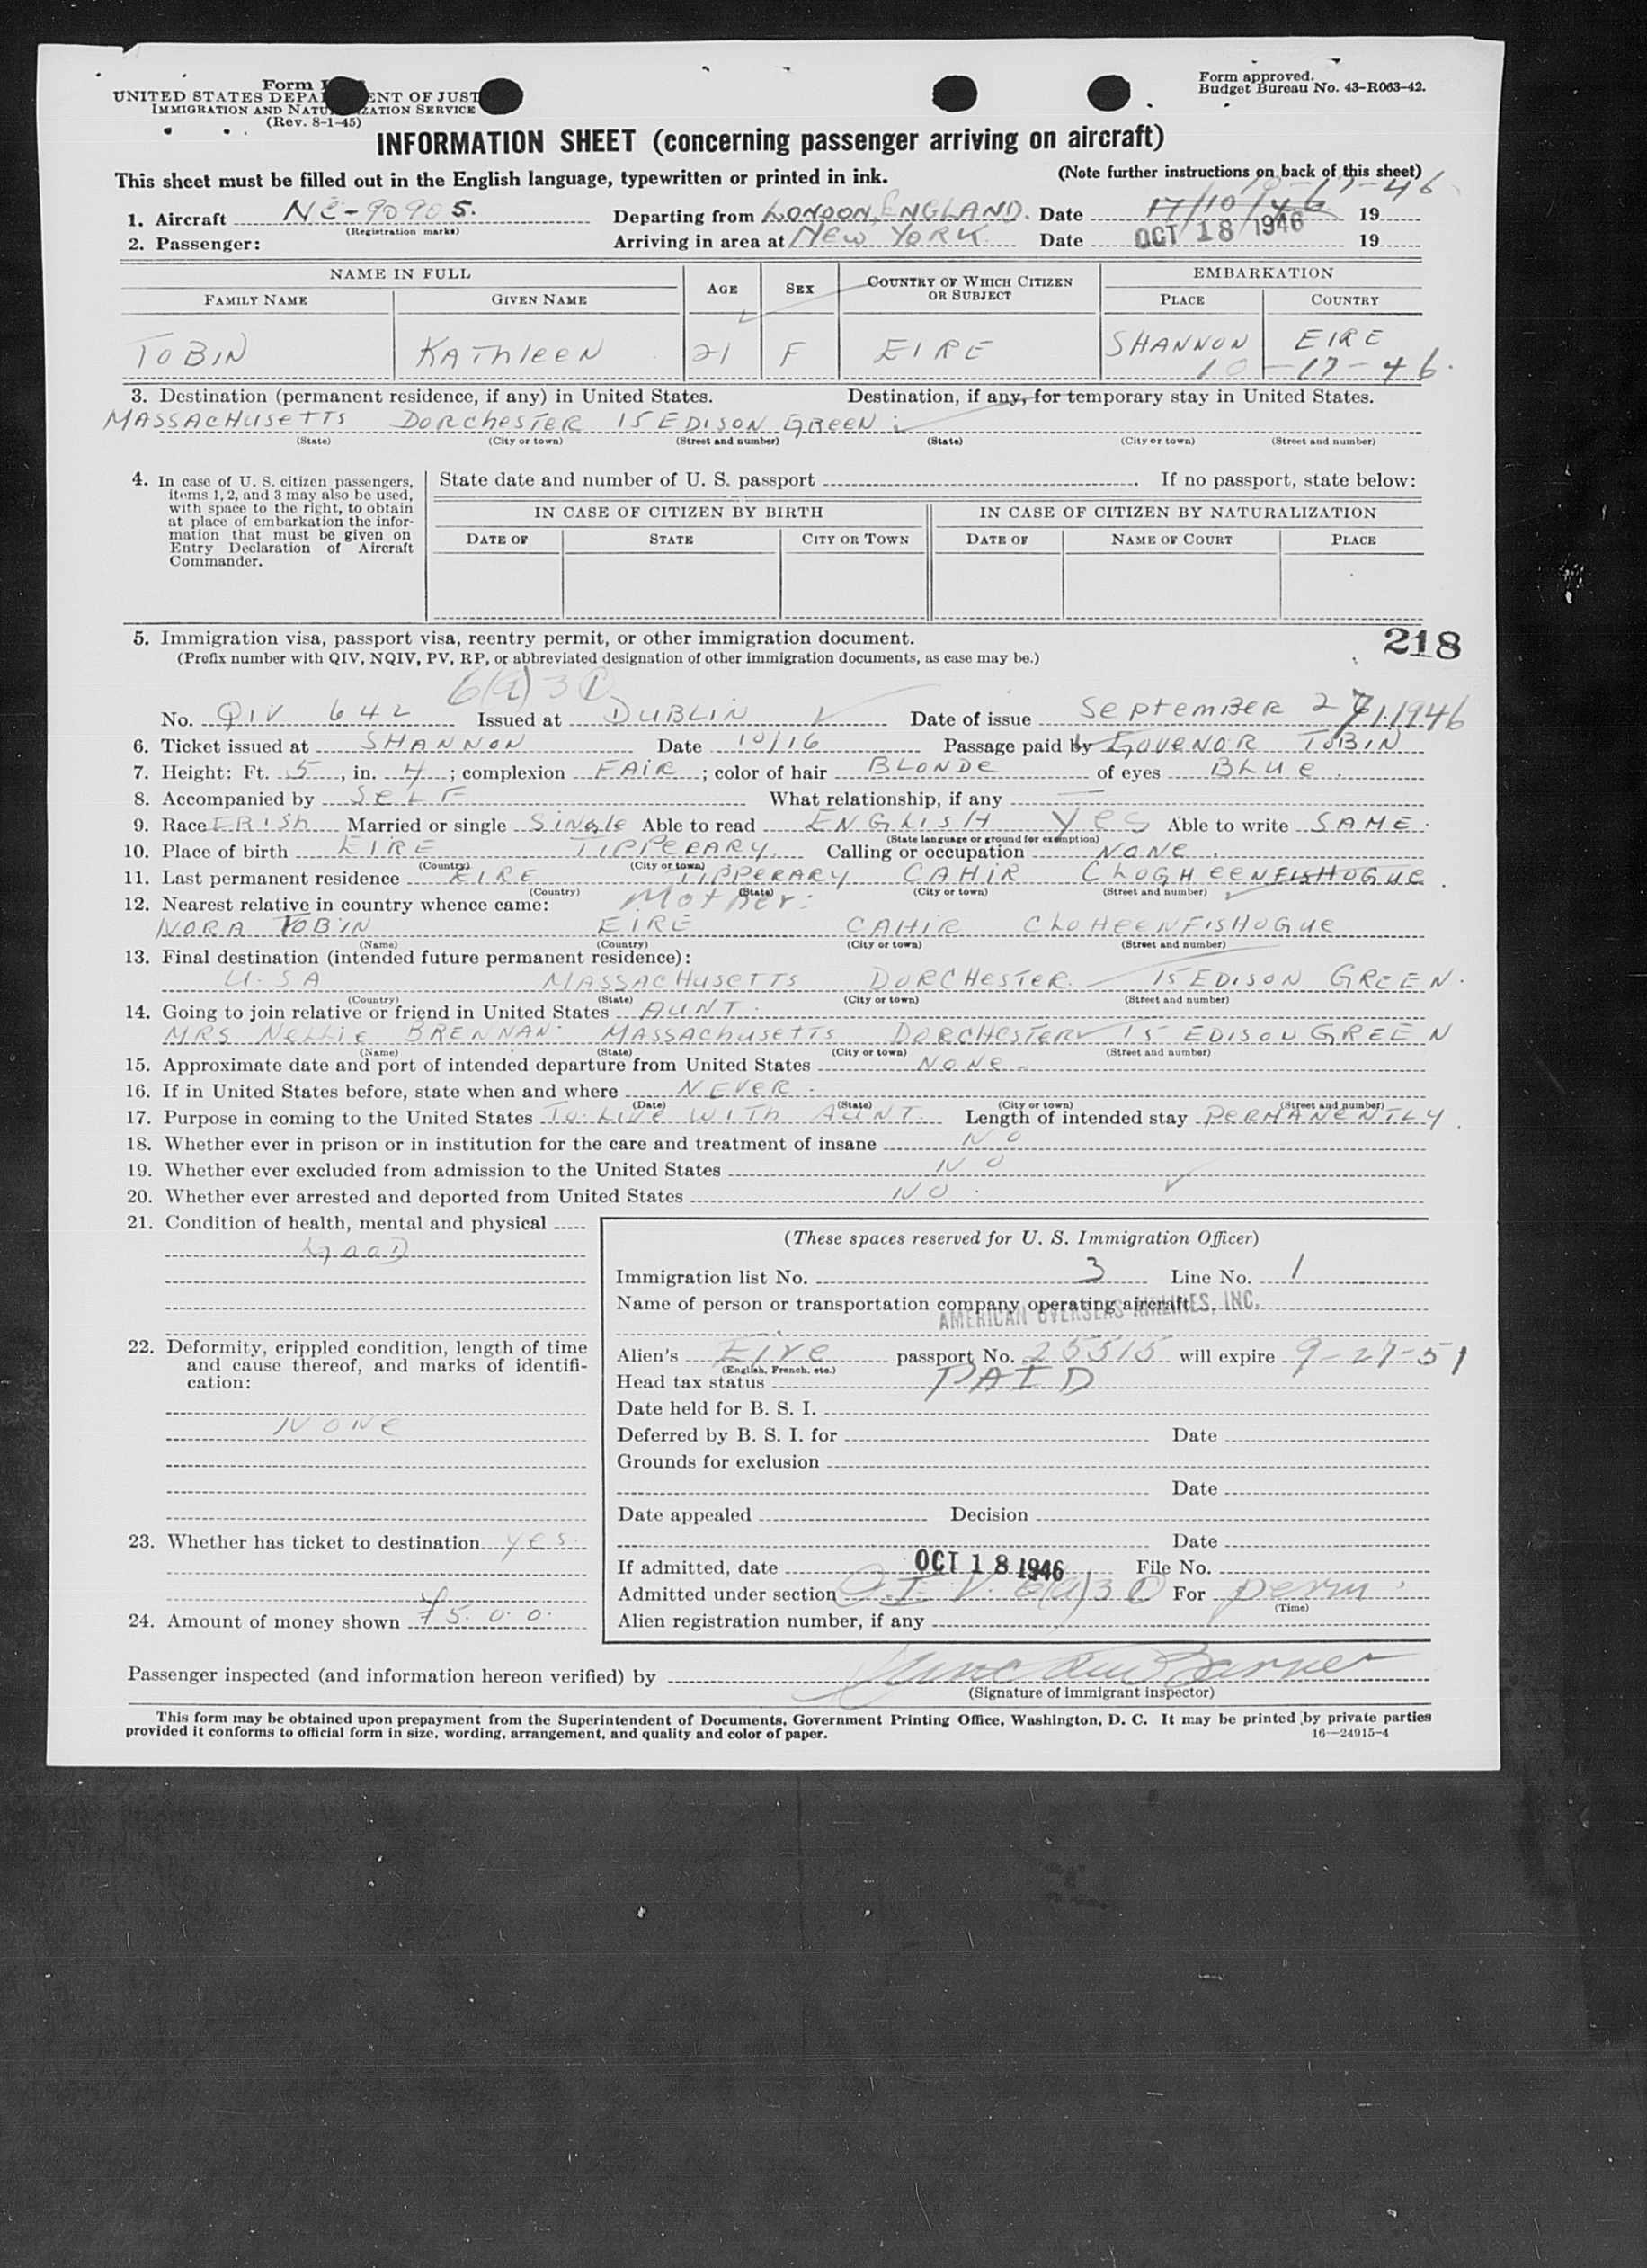 Form
UNITED STATES DEPA ENT OF JUST
IMMIGRATION AND NATU IZATION SERVICE
(Rev. 8-1-45)
Form approved.
Budget Bureau No. 43-R063-42.
INFORMATION SHEET (concerning passenger arriving on aircraft)
This sheet must be filled out in the English language, typewritten or printed in ink.
(Note further instructions on back of this sheet)
10-17-46
1. Aircraft NC-90905. Departing from LONDON, ENGLAND. Date 17/10/46 19
(Registration marks)
2. Passenger: Arriving in area at NEW YORK Date OCT 18 1946 19
NAME IN FULL AGE SEX COUNTRY OF WHICH CITIZEN OR SUBJECT EMBARKATION
FAMILY NAME GIVEN NAME PLACE COUNTRY
TOBIN KAThleeN 21 F EIRE SHANNON EIRE
10-17-46.
3. Destination (permanent residence, if any) in United States. Destination, if any, for temporary stay in United States.
MASSACHUSETTS DORCHESTER 15 EDISON GREEN
(State) (City or town) (Street and number) (State) (City or town) (Street and number)
4. In case of U. S. citizen passengers,
items 1, 2, and 3 may also be used,
with space to the right, to obtain
at place of embarkation the infor-
mation that must be given on
Entry Declaration of Aircraft
Commander.
State date and number of U. S. passport . If no passport, state below:
IN CASE OF CITIZEN BY BIRTH IN CASE OF CITIZEN BY NATURALIZATION
DATE OF STATE CITY OR TOWN DATE OF NAME OF COURT PLACE
5. Immigration visa, passport visa, reentry permit, or other immigration document.
218
(Prefix number with QIV, NQIV, PV, RP, or abbreviated designation of other immigration documents, as case may be.)
6(a)3
No. QIV 642 Issued at DUBLIN Date of issue SepTEMBER 27/1946
6. Ticket issued at SHANNON Date 10/16 Passage paid by GOVENOR TOBIN
7. Height: Ft. 5, in. 4; complexion FAIR; color of hair BLONDe of eyes BLUe.
8. Accompanied by SeLF What relationship, if any —
9. Race IRISh Married or single SiNgle Able to read ENGLISH YeS Able to write SAME.
(State language or ground for exemption)
10. Place of birth EIRE TIPPERARY Calling or occupation NONe.
(Country) (City or town)
11. Last permanent residence EIRE TIPPERARY CAHIR CLOGHEENFISHOGUE.
(Country) (State) (City or town) (Street and number)
12. Nearest relative in country whence came: Mother:
NORA TOBIN EIRE CAHIR CLOHEENFISHOGUE
(Name) (Country) (City or town) (Street and number)
13. Final destination (intended future permanent residence):
U.SA MASSACHUSETTS DORCHESTER 15 EDISON GREEN.
(Country) (State) (City or town) (Street and number)
14. Going to join relative or friend in United States AUNT.
MRS NELLIE BRENNAN MASSACHUSETTS DORCHESTER 15 EDISON GREEN
(Name) (State) (City or town) (Street and number)
15. Approximate date and port of intended departure from United States NONe
16. If in United States before, state when and where NEVER.
(Date) (State) (City or town) (Street and number)
17. Purpose in coming to the United States To LIVe WITh AUNT. Length of intended stay PERMANENTLY.
18. Whether ever in prison or in institution for the care and treatment of insane NO
19. Whether ever excluded from admission to the United States NO
20. Whether ever arrested and deported from United States NO
21. Condition of health, mental and physical
GOOD
(These spaces reserved for U. S. Immigration Officer)
Immigration list No. 3 Line No. 1
Name of person or transportation company operating aircraft
AMERICAN OVERSEAS AIRLINES, INC.
22. Deformity, crippled condition, length of time
and cause thereof, and marks of identifi-
cation:
NONe
Alien's Eire passport No. 25515 will expire 9-27-51
(English, French, etc.)
Head tax status PAID
Date held for B. S. I.
Deferred by B. S. I. for Date
Grounds for exclusion
Date
Date appealed Decision
23. Whether has ticket to destination yes.
Date
If admitted, date OCT 18 1946 File No.
Admitted under section QIV. 6(a)3 For perm.
(Time)
24. Amount of money shown 75.00.
Alien registration number, if any
Passenger inspected (and information hereon verified) by
(Signature of immigrant inspector)
This form may be obtained upon prepayment from the Superintendent of Documents, Government Printing Office, Washington, D. C. It may be printed by private parties
provided it conforms to official form in size, wording, arrangement, and quality and color of paper. 16—24915-4